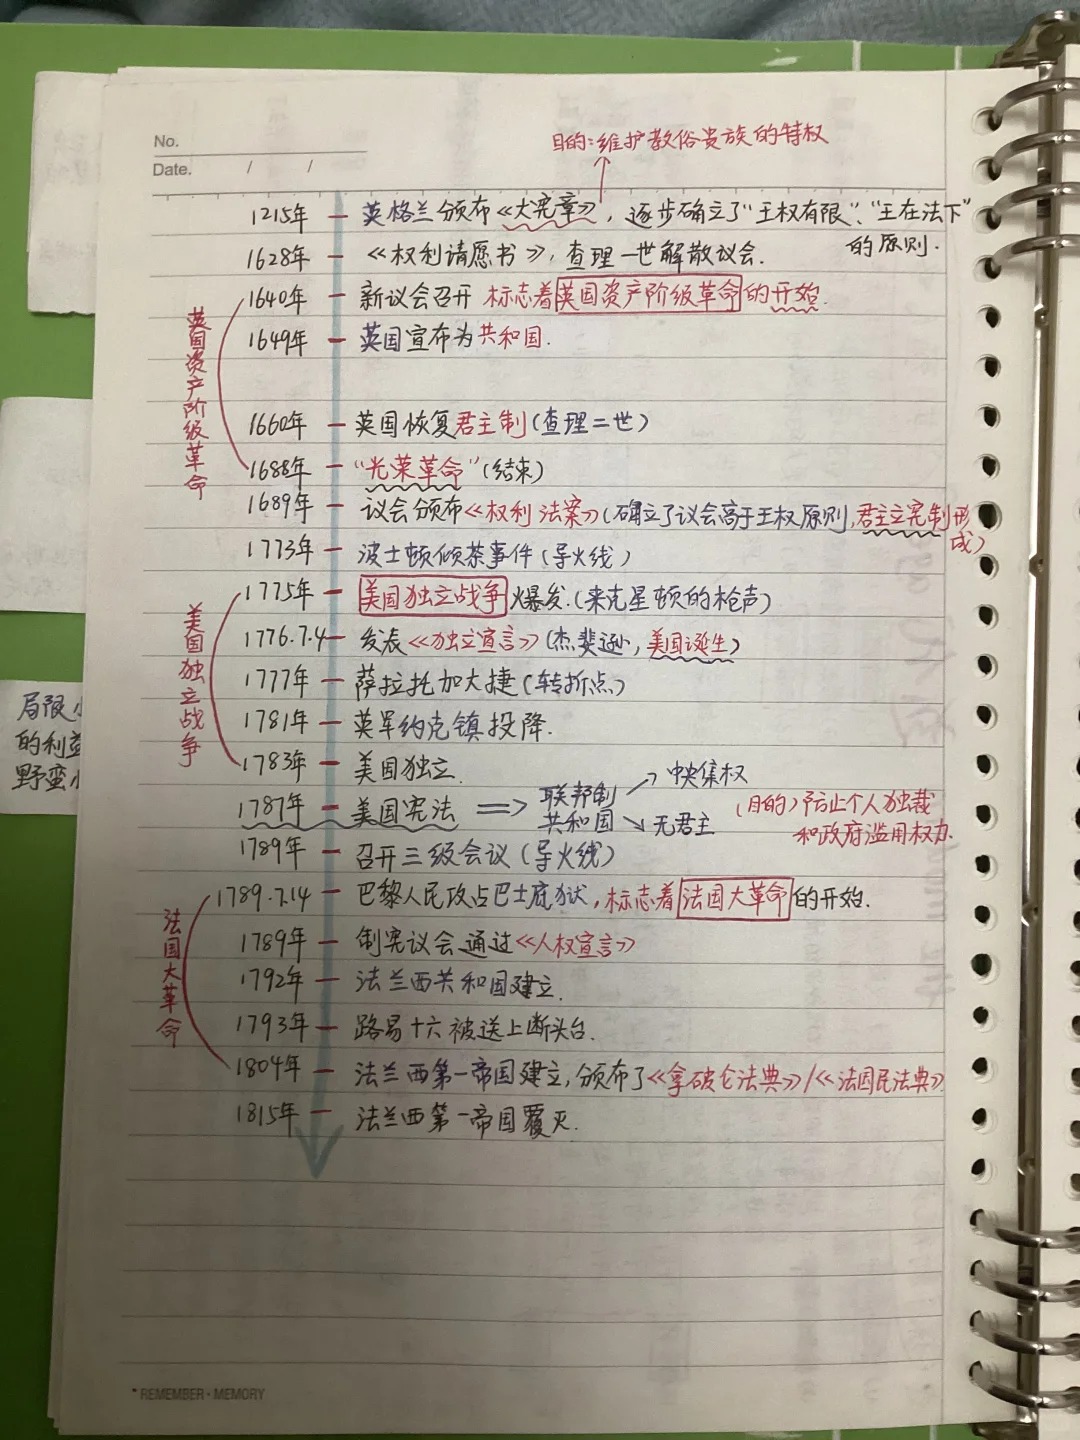 No.
目的:维护教俗贵族的特权
Date. / /
1215年 — 英格兰颁布《大宪章》,逐步确立了"王权有限"、"王在法下"
的原则.
1628年 — 《权利请愿书》,查理一世解散议会.
1640年 — 新议会召开 标志着英国资产阶级革命的开始.
1649年 — 英国宣布为共和国.
英国资产阶级革命
1660年 — 英国恢复君主制(查理二世)
1688年 — "光荣革命"(结束)
1689年 — 议会颁布《权利法案》(确立了议会高于王权原则,君主立宪制形
成)
1773年 — 波士顿倾茶事件(导火线)
1775年 — 美国独立战争爆发.(来克星顿的枪声)
美国独立战争
1776.7.4 — 发表《独立宣言》(杰斐逊,美国诞生)
1777年 — 萨拉托加大捷(转折点)
1781年 — 英军约克镇投降.
1783年 — 美国独立.
1787年 — 美国宪法 ⇒ 联邦制 → 中央集权
共和国 ↘ 无君主
(目的)防止个人独裁
和政府滥用权力.
1789年 — 召开三级会议(导火线)
1789.7.14 — 巴黎人民攻占巴士底狱,标志着法国大革命的开始.
法国大革命
1789年 — 制宪议会通过《人权宣言》
1792年 — 法兰西共和国建立.
1793年 — 路易十六被送上断头台.
1804年 — 法兰西第一帝国建立,颁布了《拿破仑法典》/《法国民法典》
1815年 — 法兰西第一帝国覆灭.
局限
的利益
野蛮
REMEMBER · MEMORY